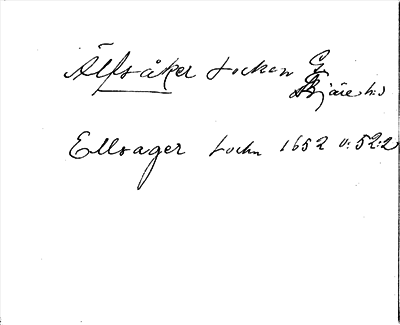 Älfsåker socken G
Bjäre hd
Ellsager Sockn 1652 v: 52:2